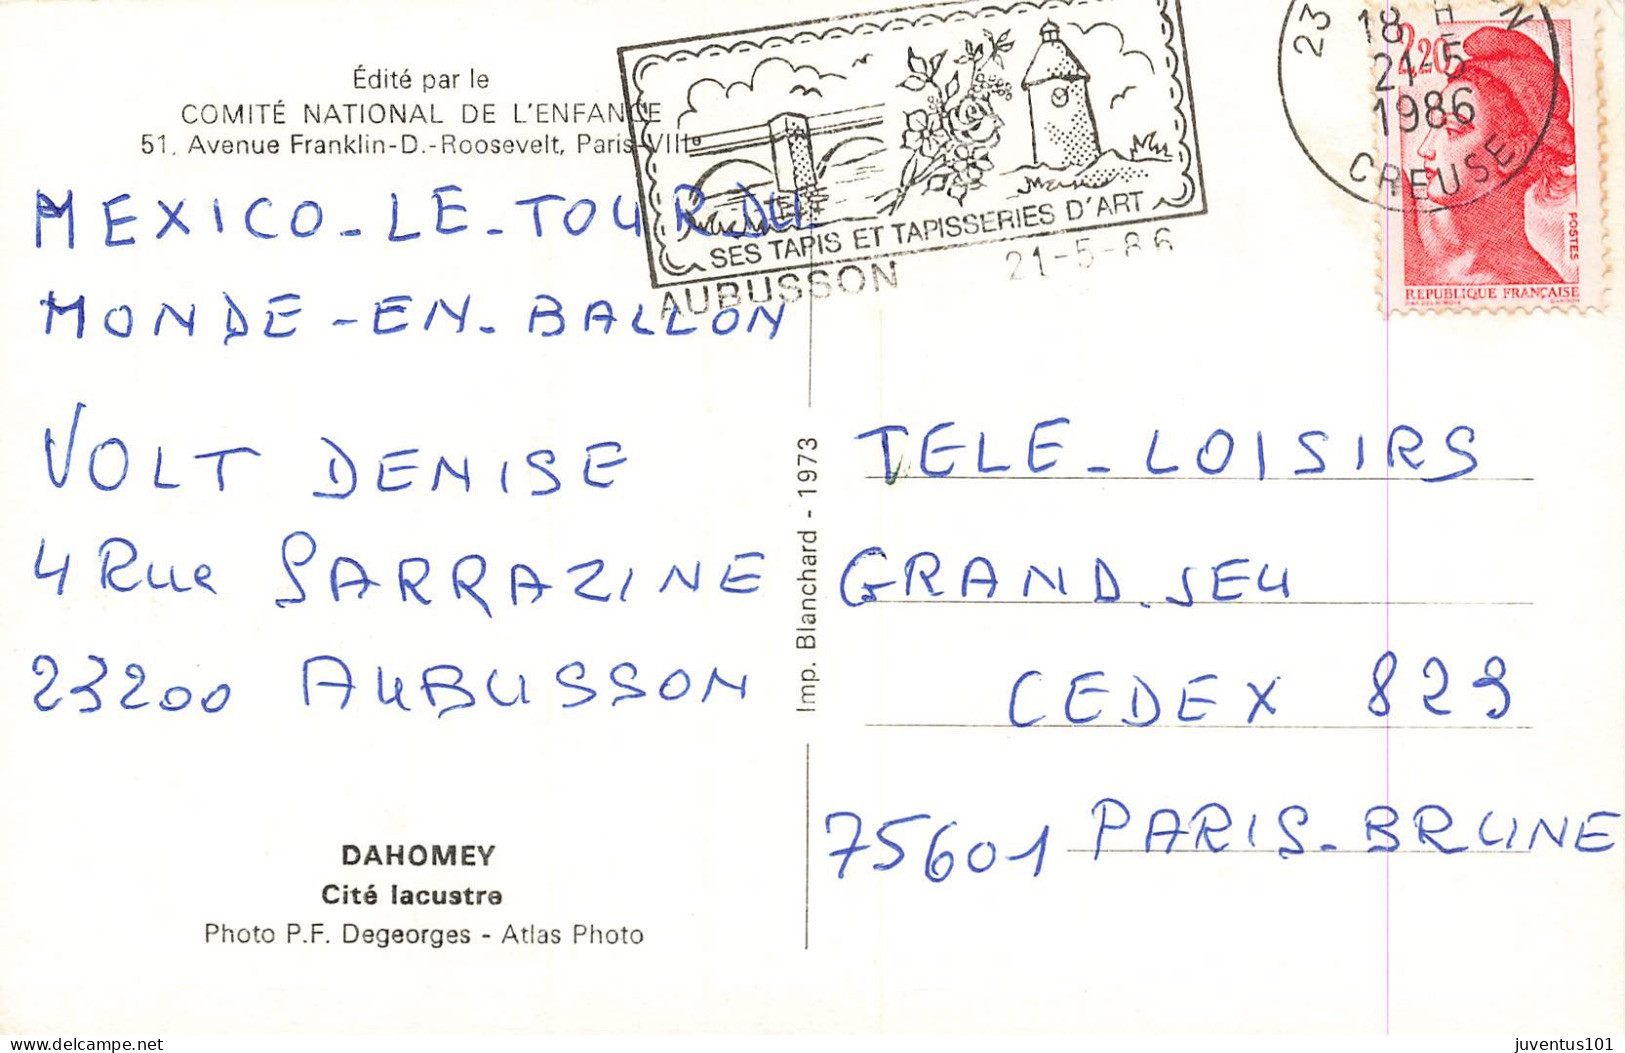 Édité par le
COMITÉ NATIONAL DE L'ENFANCE
51. Avenue Franklin-D.-Roosevelt, Paris-VIIIe
MEXICO_LE_TOUR DU
MONDE-EN-BALLON
VOLT DENISE
4 Rue SARRAZINE
23200 AUBUSSON
DAHOMEY
Cité lacustre
Photo P.F. Degeorges - Atlas Photo
Imp. Blanchard - 1973
SES TAPIS ET TAPISSERIES D'ART
AUBUSSON
21-5-86
23
18 H
21-5
1986
CREUSE
2,20
POSTES
REPUBLIQUE FRANÇAISE
TELE_LOISIRS
GRAND.JEU
CEDEX 829
75601 PARIS_BRUNE
delcampe.net
juventus101